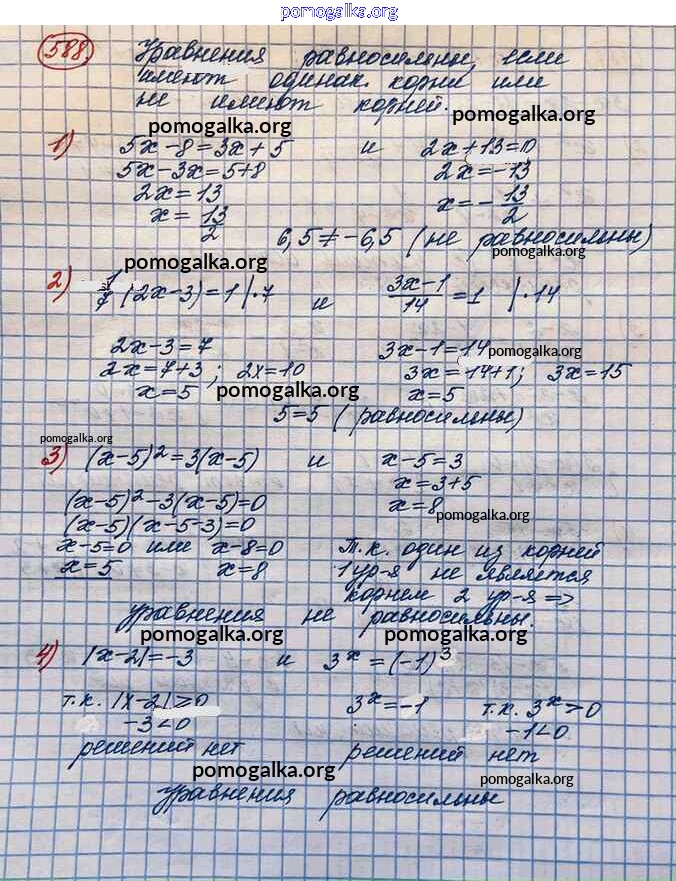 pomogalka.org
588. Уравнения равносильны, если
имеют одинак. корни или
не имеют корней.
pomogalka.org pomogalka.org
1) 5x-8=3x+5 и 2x+13=0
5x-3x=5+8 2x=-13
2x=13 x=-13/2
x=13/2
6,5≠-6,5 (не равносильны)
pomogalka.org pomogalka.org
2) 1/7(2x-3)=1 |·7 и (3x-1)/14=1 |·14
2x-3=7 3x-1=14 pomogalka.org
2x=7+3; 2x=10 3x=14+1; 3x=15
x=5 pomogalka.org x=5
5=5 (равносильны)
pomogalka.org
3) (x-5)²=3(x-5) и x-5=3
x=3+5
(x-5)²-3(x-5)=0 x=8
pomogalka.org
(x-5)(x-5-3)=0
x-5=0 или x-8=0 Т.к. один из корней
x=5 x=8 1 ур-я не является
корнем 2 ур-я =>
уравнения не равносильны.
pomogalka.org pomogalka.org
4) |x-2|=-3 и 3ˣ=(-1)³
т.к. |x-2|≥0 3ˣ=-1 т.к. 3ˣ>0
-3<0 -1<0
решений нет решений нет
pomogalka.org pomogalka.org
Уравнения равносильны